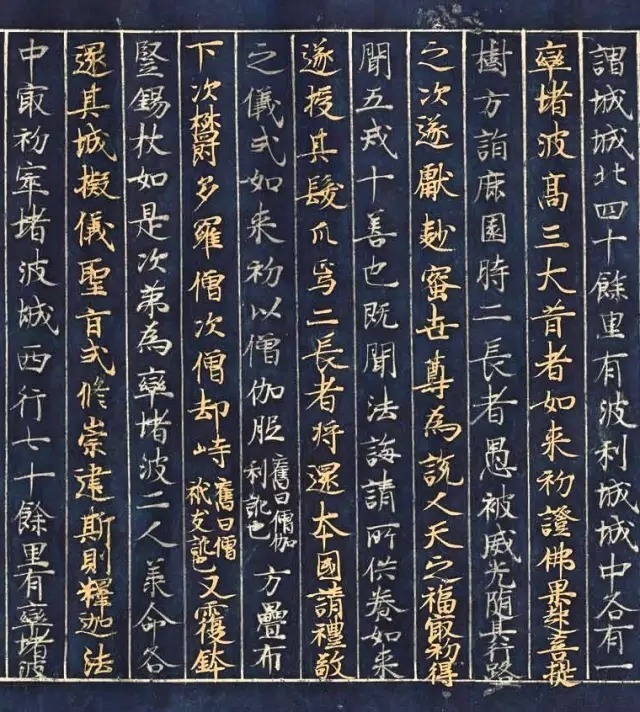 謂城城北四十餘里有波利城城中各有一
窣堵波高三大首者如来初證佛果菩提
樹方詣鹿園時二長者愚被威光随其行路
之次遂獻麨蜜世尊為説人天之福冣初得
聞五戒十善也既聞法誨請所供養如来
遂授其髮爪焉二長者将還本國請禮敬
之儀式如来初以僧伽胝舊曰僧伽利訛也方疊布
下次欝多羅僧次僧却峙舊曰僧祇支訛也又覆鉢
竪錫杖如是次第為窣堵波二人承命各
還其城擬儀聖旨式修崇建斯則釋迦法
中冣初窣堵波城西行七十餘里有窣堵波